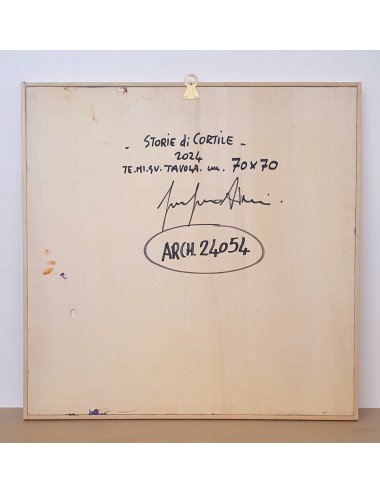 - STORIE di CORTILE -
2024
TE.MI.SU. TAVOLA. cm. 70x70
ARCH. 24054